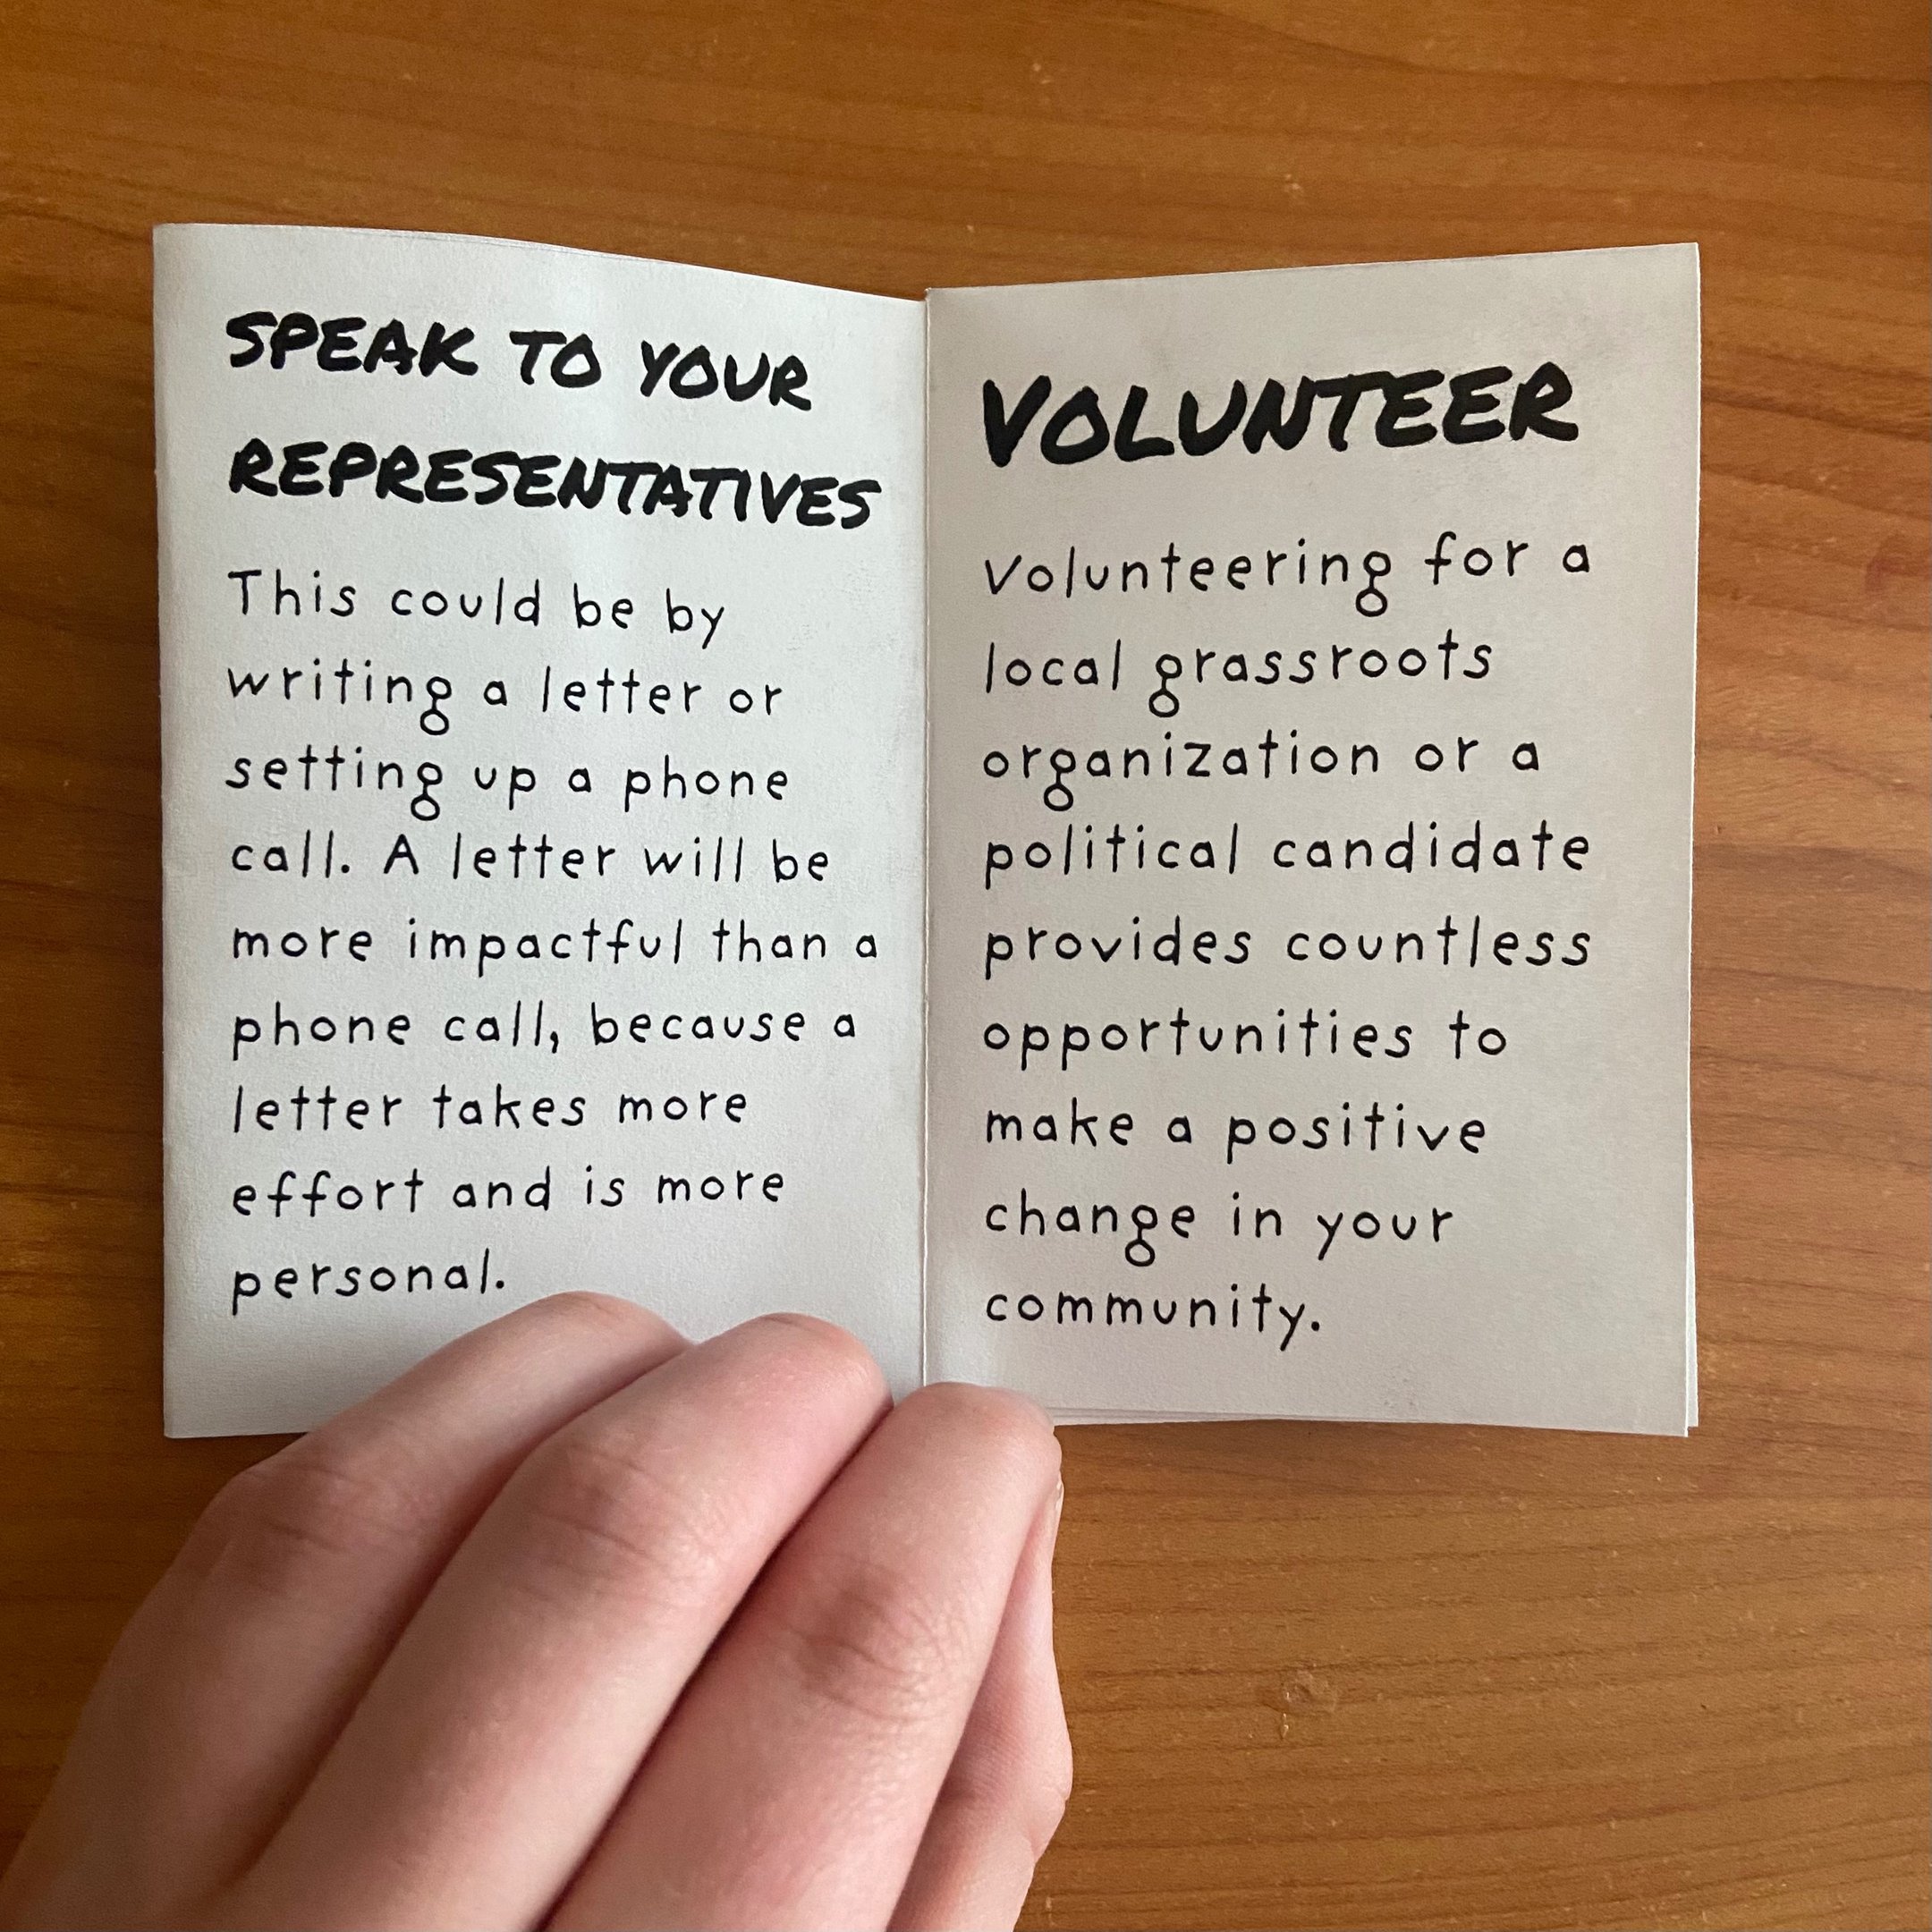 SPEAK TO YOUR
REPRESENTATIVES
This could be by
writing a letter or
setting up a phone
call. A letter will be
more impactful than a
phone call, because a
letter takes more
effort and is more
personal.
VOLUNTEER
Volunteering for a
local grassroots
organization or a
political candidate
provides countless
opportunities to
make a positive
change in your
community.